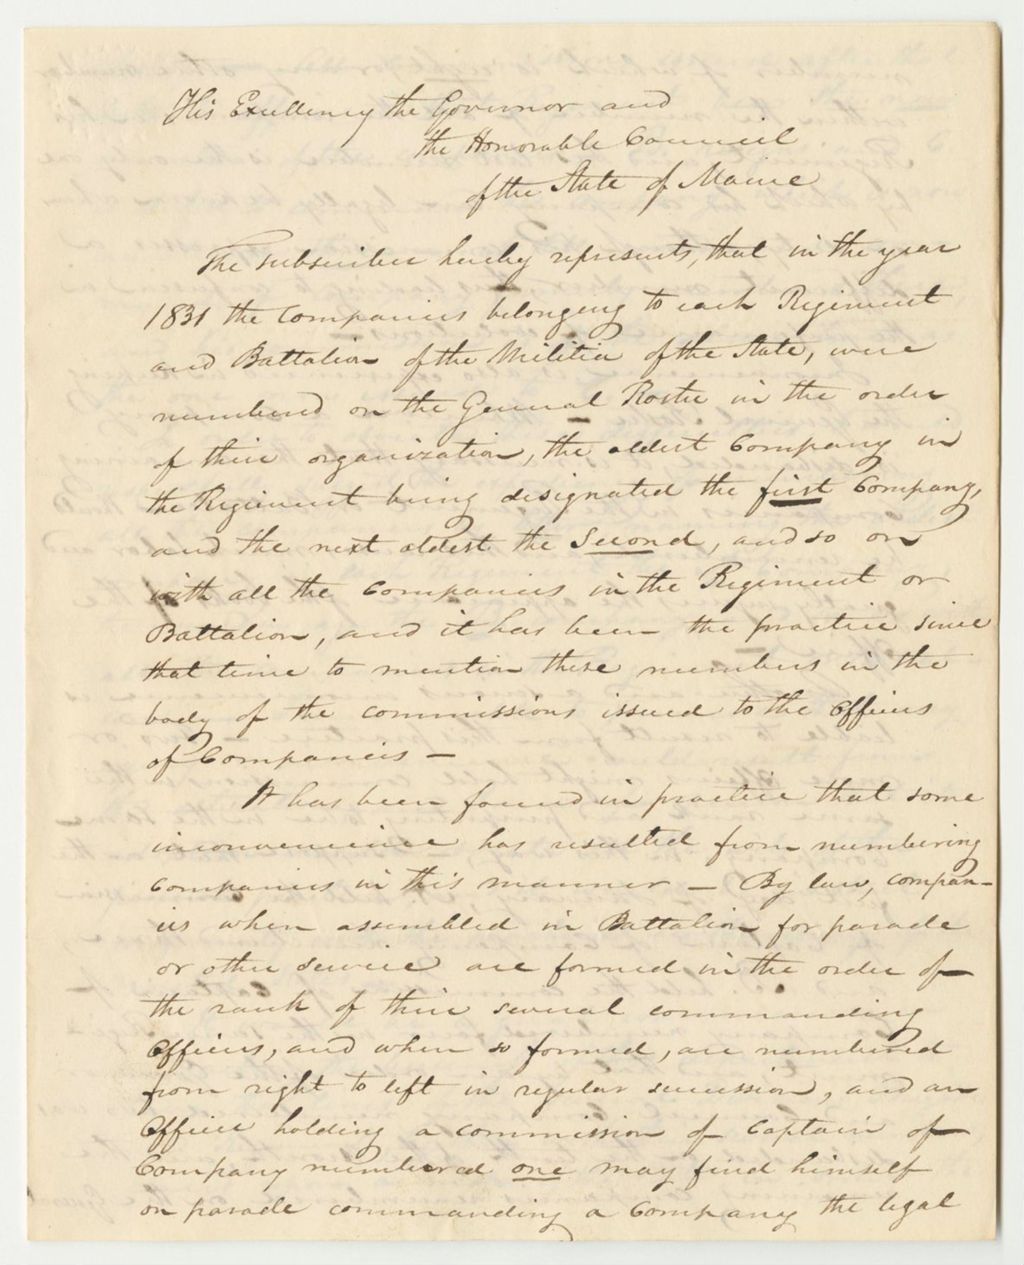 His Excellency the Governor and
the Honorable Council
of the State of Maine
The subscriber hereby represents, that in the year
1831 the Companies belonging to each Regiment
and Battalion of the Militia of the State, were
numbered on the General Roster in the order
of their organization, the oldest Company in
the Regiment being designated the first Company,
and the next oldest the Second, and so on
with all the Companies in the Regiment or
Battalion, and it has been the practice since
that time to mention these numbers in the
body of the commissions issued to the Officers
of Companies —
It has been found in practice that some
inconvenience has resulted from numbering
Companies in this manner — By law, compan-
ies when assembled in Battalion for parade
or other service are formed in the order of
the rank of their several commanding
Officers, and when so formed, are numbered
from right to left in regular succession, and an
Officer holding a commission of Captain of
Company numbered one may find himself
on parade commanding a Company the legal